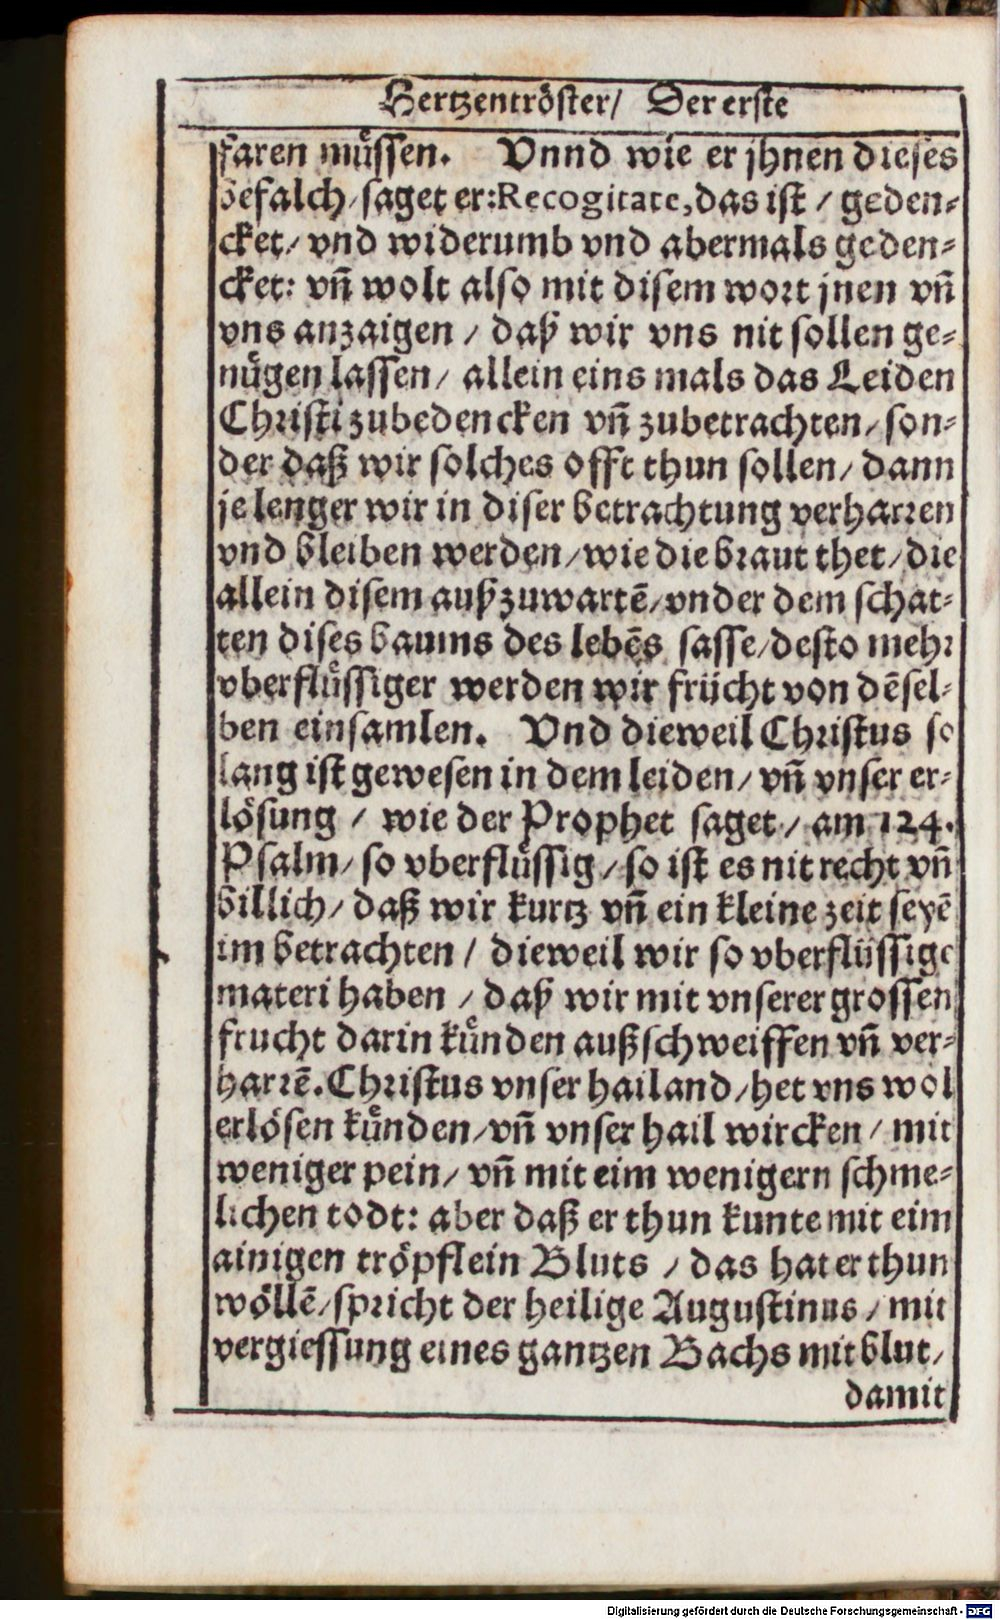 Hertzentröster/ Der erste
faren müssen. Vnnd wie er jhnen dieses
befalch/ saget er: Recogitate, das ist / geden-
cket/ vnd widerumb vnd abermals geden-
cket: vñ wolt also mit disem wort jnen vñ
vns anzaigen / daß wir vns nit sollen ge-
nügen lassen/ allein eins mals das Leiden
Christi zubedencken vñ zubetrachten/ son-
der daß wir solches offt thun sollen/ dann
je lenger wir in diser betrachtung verharren
vnd bleiben werden/ wie die braut thet/ die
allein disem außzuwartē/ vnder dem schat-
ten dises baums des lebēs sasse/ desto mehr
vberflüssiger werden wir frücht von dēsel-
ben einsamlen. Vnd dieweil Christus so
lang ist gewesen in dem leiden/ vñ vnser er-
lösung / wie der Prophet saget / am 124.
Psalm/ so vberflüssig / so ist es nit recht vñ
billich/ daß wir kurtz vñ ein kleine zeit seyē
im betrachten / dieweil wir so vberflüssige
materi haben / daß wir mit vnserer grossen
frucht darin künden außschweiffen vñ ver-
harrē. Christus vnser hailand/ het vns wol
erlösen künden/ vñ vnser hail wircken / mit
weniger pein/ vñ mit eim wenigern schme-
lichen todt: aber daß er thun kunte mit eim
ainigen tröpflein Bluts / das hat er thun
wöllē/ spricht der heilige Augustinus / mit
vergiessung eines gantzen Bachs mit blut/
damit
Digitalisierung gefördert durch die Deutsche Forschungsgemeinschaft - DFG